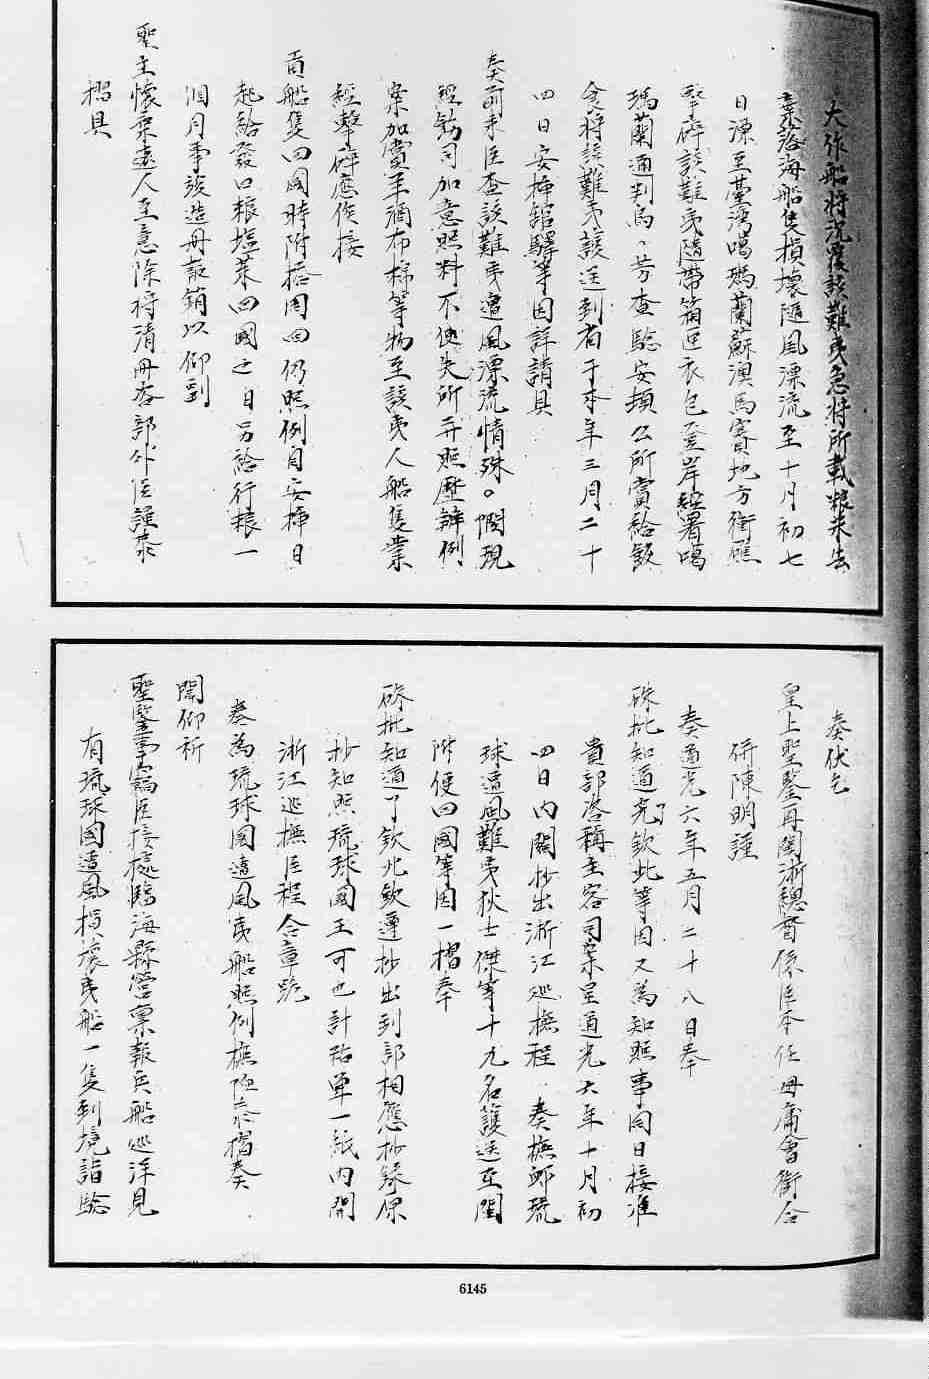 大作船將沉覆該難夷急將所載粮米丟
棄詻海船隻損壞隨風漂流至十月初七
日漂至臺灣噶瑪蘭蘇澳馬賽地方衝礁
擊碎該難夷隨帶箱匣衣包登岸經署噶
瑪蘭通判烏芳查驗安頓公所當給飯
食將該難夷護送到省于本年三月二十
四日安揷舘驛等因詳請具
奏前來臣查該難夷遭風漂流情殊可憫現
經飭司加意照料不使失所并照歷辦例
案加賞羊酒布棉等物至該夷人船隻業
經擊碎應俟接
貢船隻回國時附搭同回仍照例自安揷日
起給發口粮塩菜回國之日另給行粮一
個月事竣造册報銷以仰副
聖主懷柔遠人至意除將清册咨部外臣謹恭
摺具
奏伏乞
皇上聖鑒再閩浙總督係臣本任毋庸會銜合
併陳明謹
奏道光六年五月二十八日奉
硃批知道了欽此等因又爲知照事同日接准
貴部咨稱主客司案呈道光六年十月初
四日內閣抄出浙江巡撫程 奏撫䘏琉
球遭風難夷狄士傑等十九名護送至閩
附便回國等因一摺奉
硃批知道了欽此欽遵抄出到部相應抄錄原
抄知照琉球國王可也計粘單一紙內開
浙江巡撫臣程含章跪
奏為琉球國遭風夷船照例撫䘏恭摺奏
聞仰祈
聖鑒事竊臣接據臨海縣營稟報兵船巡洋見
有琉球國遭風損壞夷船一隻到境詣驗
6145